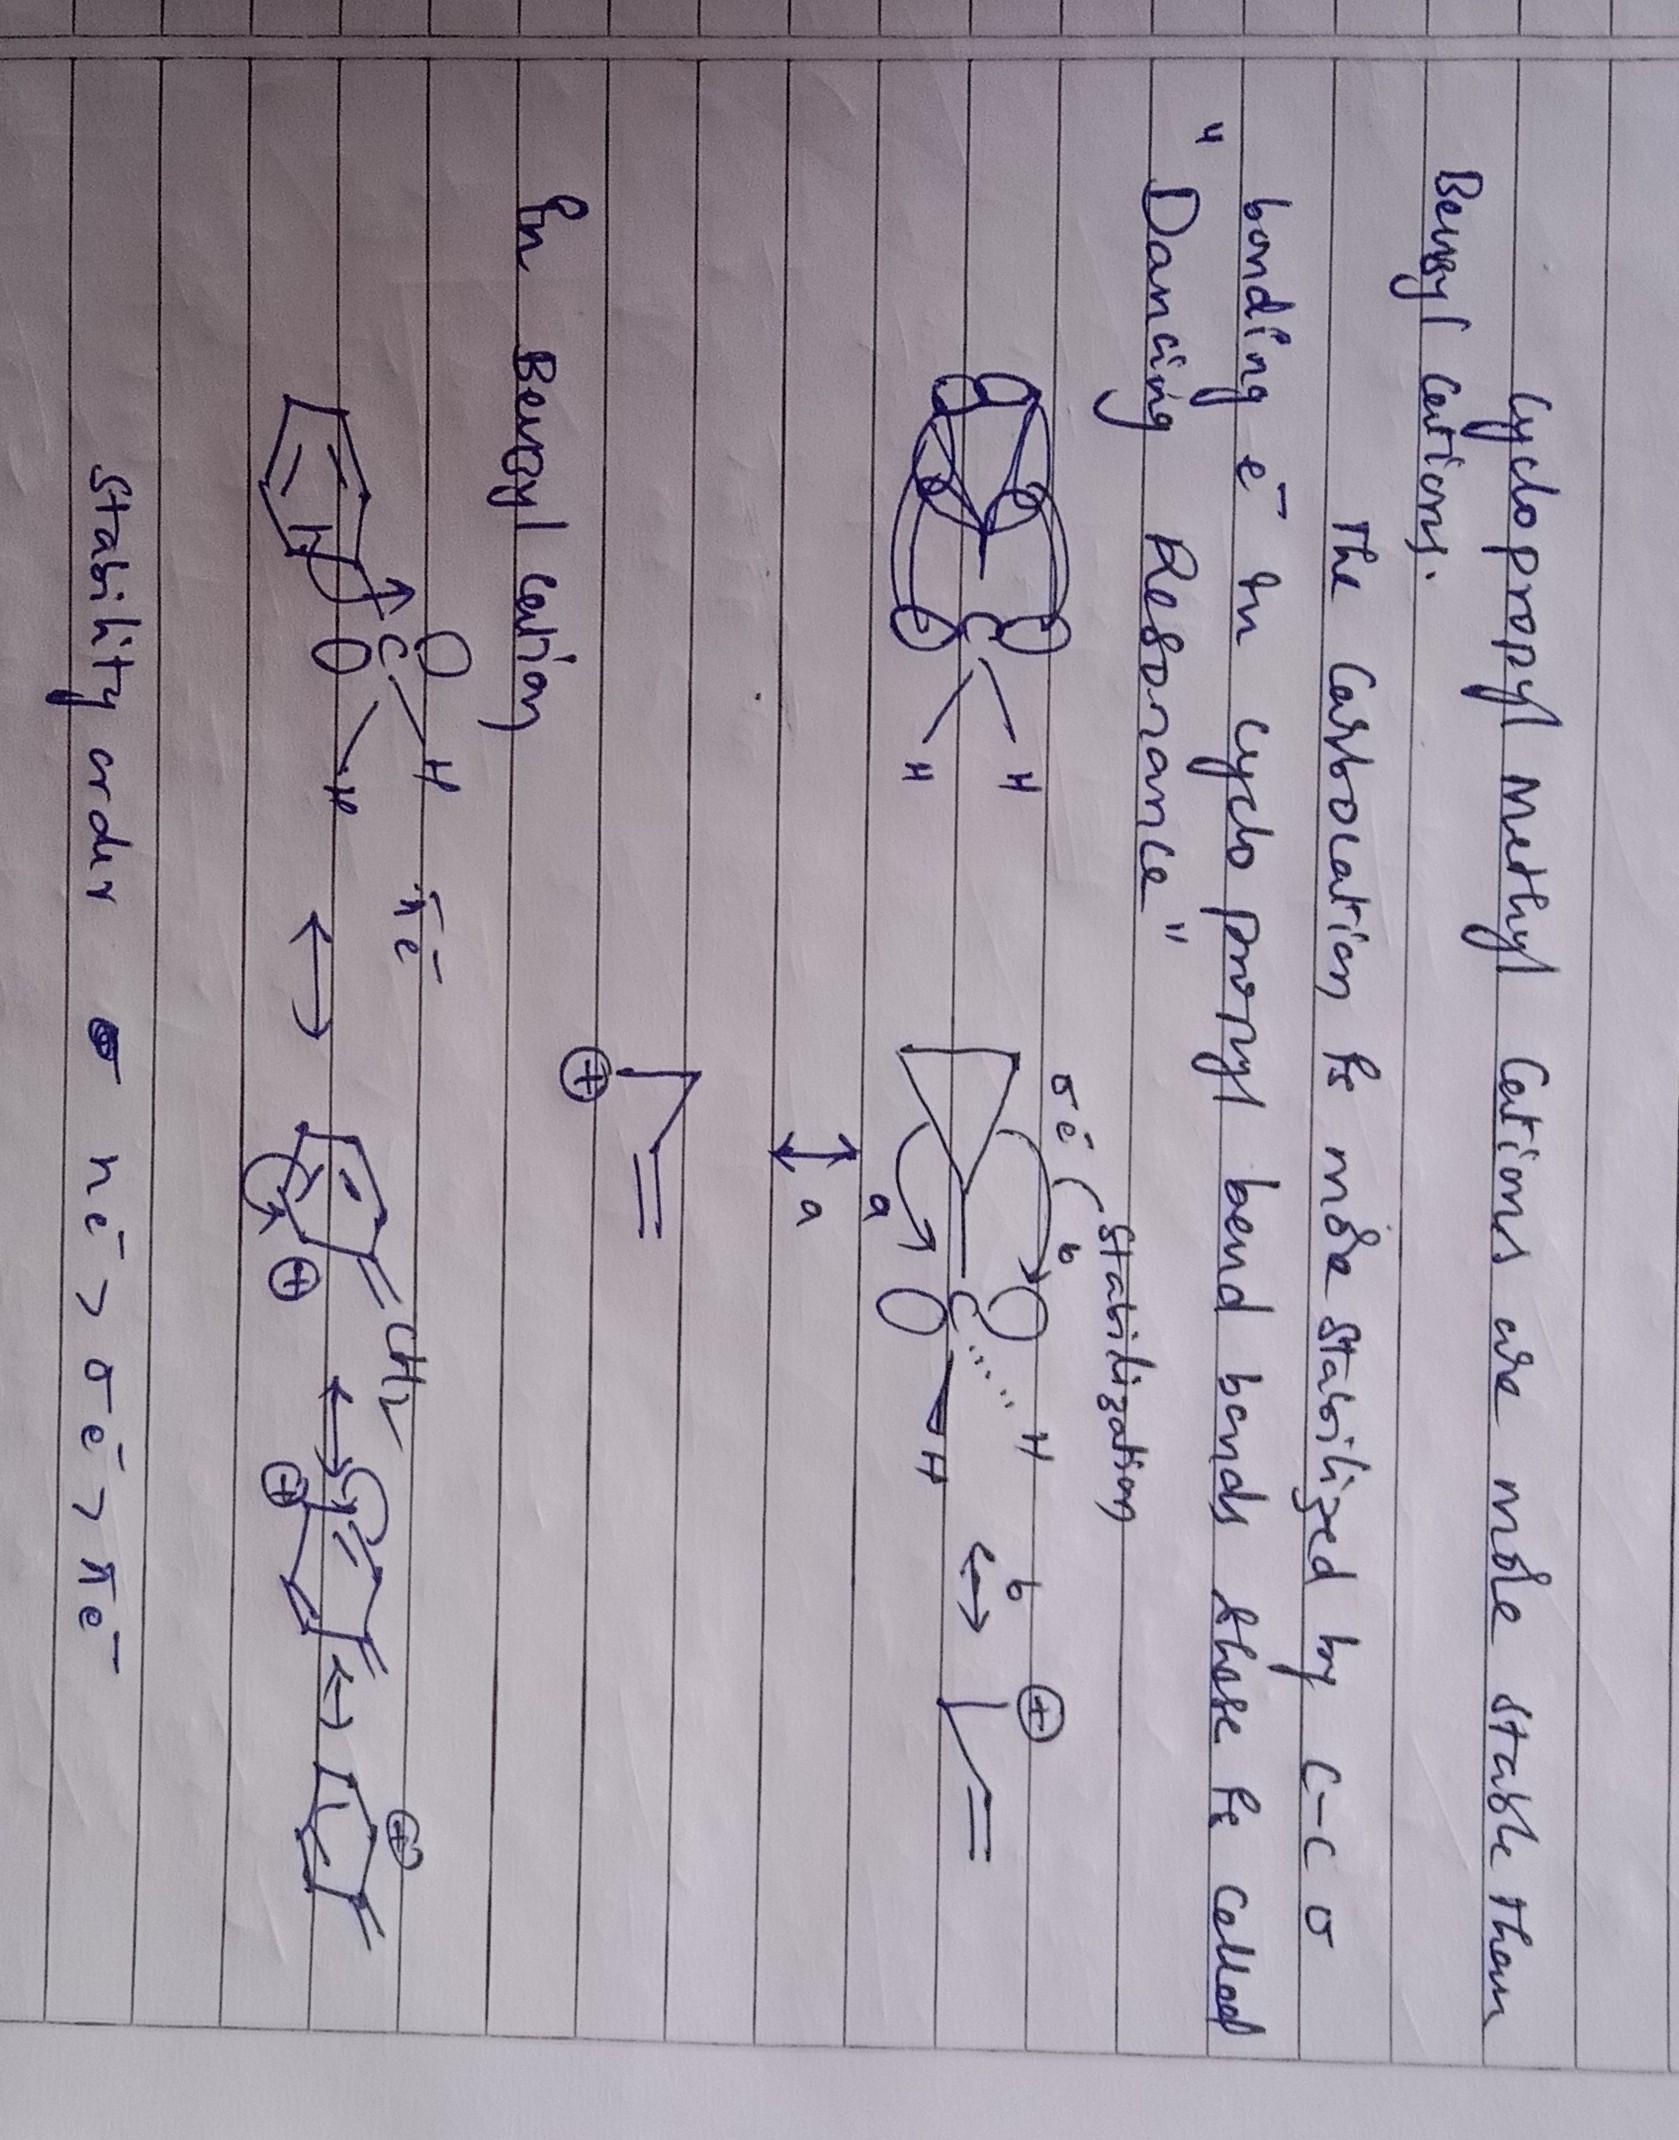 Cyclopropyl Methyl Cations are more stable than
Benzyl Cations.
The Carbocation is more stabilized by C-C σ
bonding e⁻ in cyclo propyl bend bands these is called
"Dancing Resonance"
σe⁻
Stabilization
a
b
C
H
H
C
H
H
b
⊕
a
⊕
In Benzyl Cation
πe⁻
C
H
H
CH₂
⊕
⊕
⊕
Stability order ne⁻ > σe⁻ > πe⁻